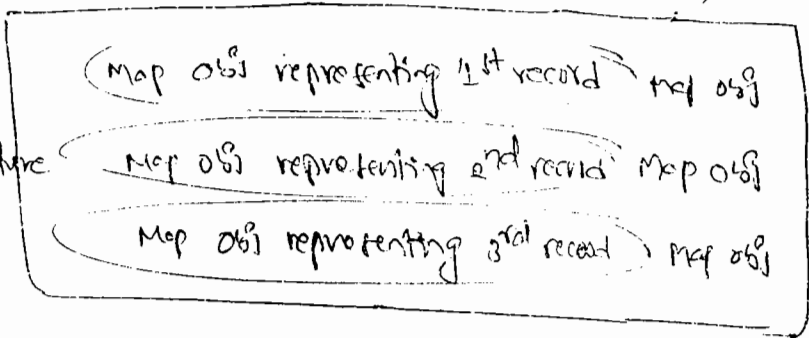 Map obj representing 1st record Map obj
Map obj representing 2nd record Map obj
Map obj representing 3rd record Map obj